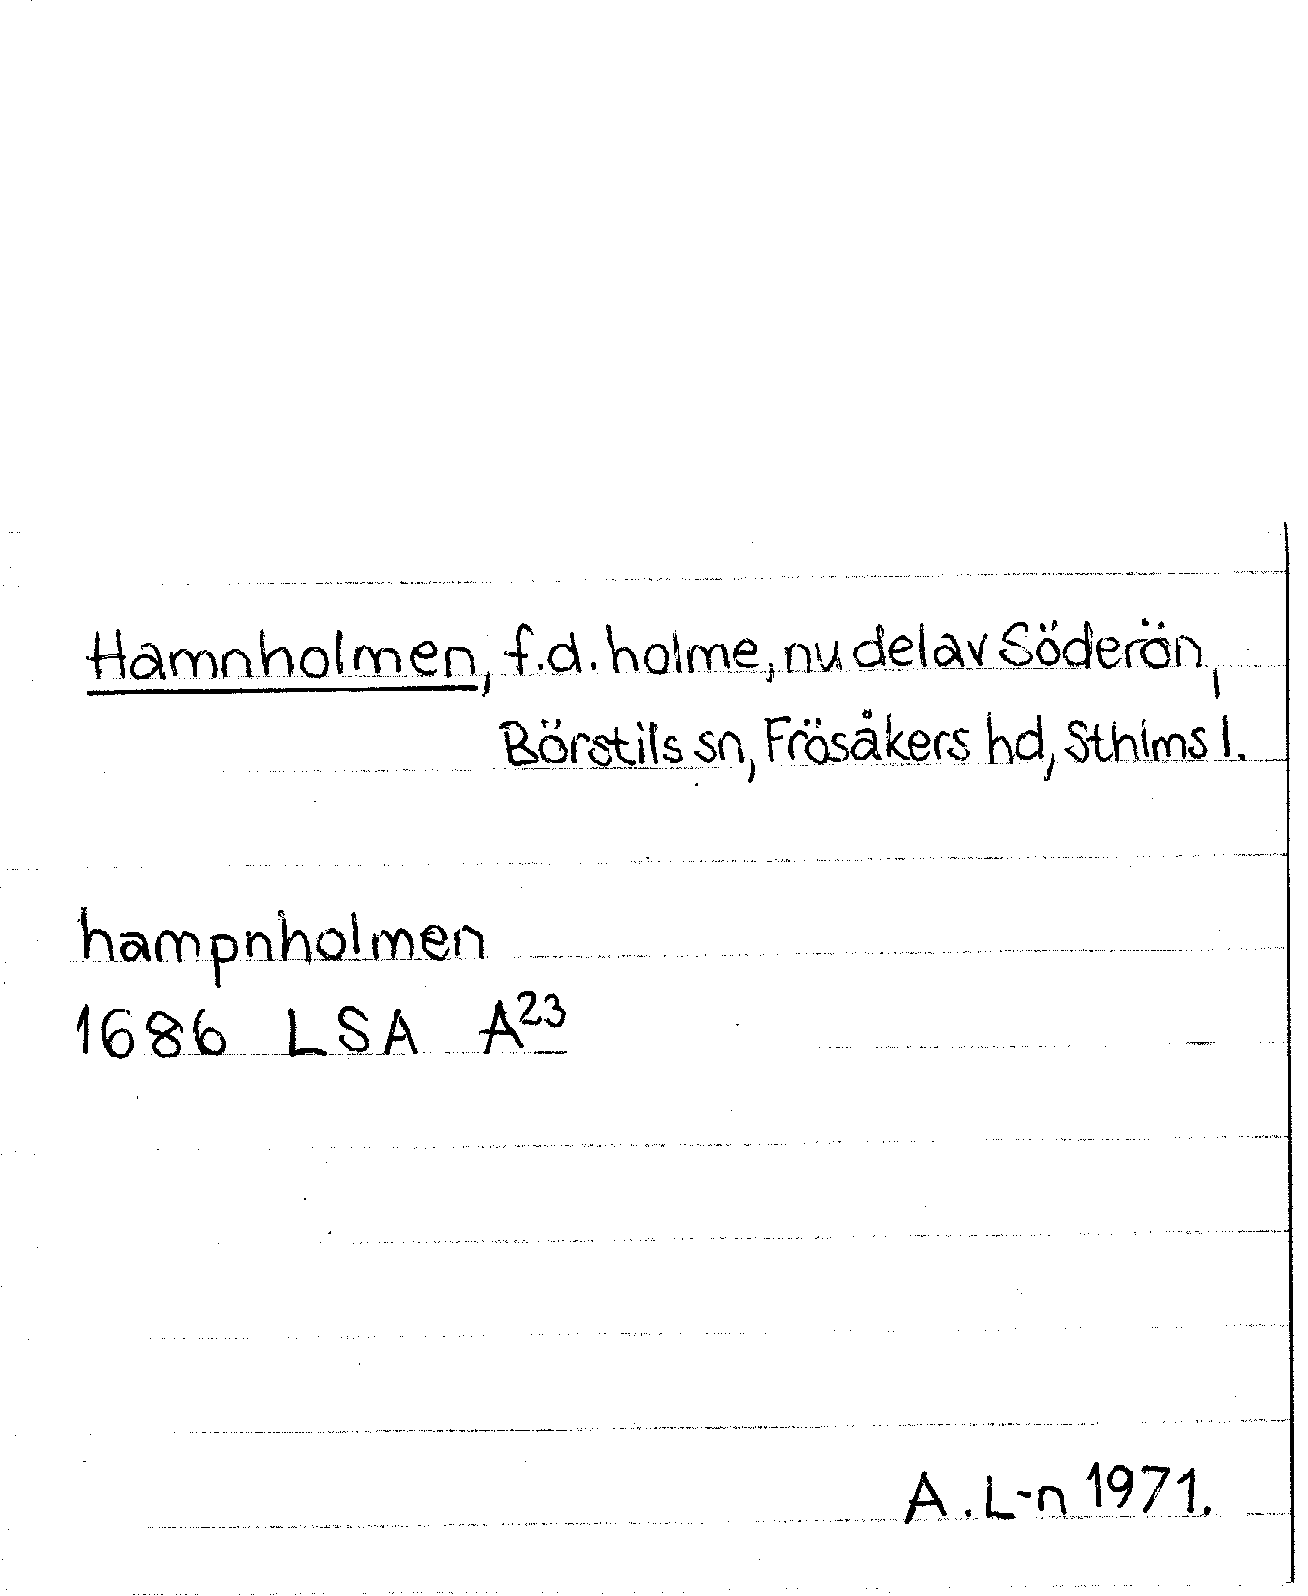 Hamnholmen, f.d. holme, nu del av Söderön,
Börstils sn, Frösåkers hd, Sthlms l.
hampnholmen
1686 LSA A23
A. L-n 1971.